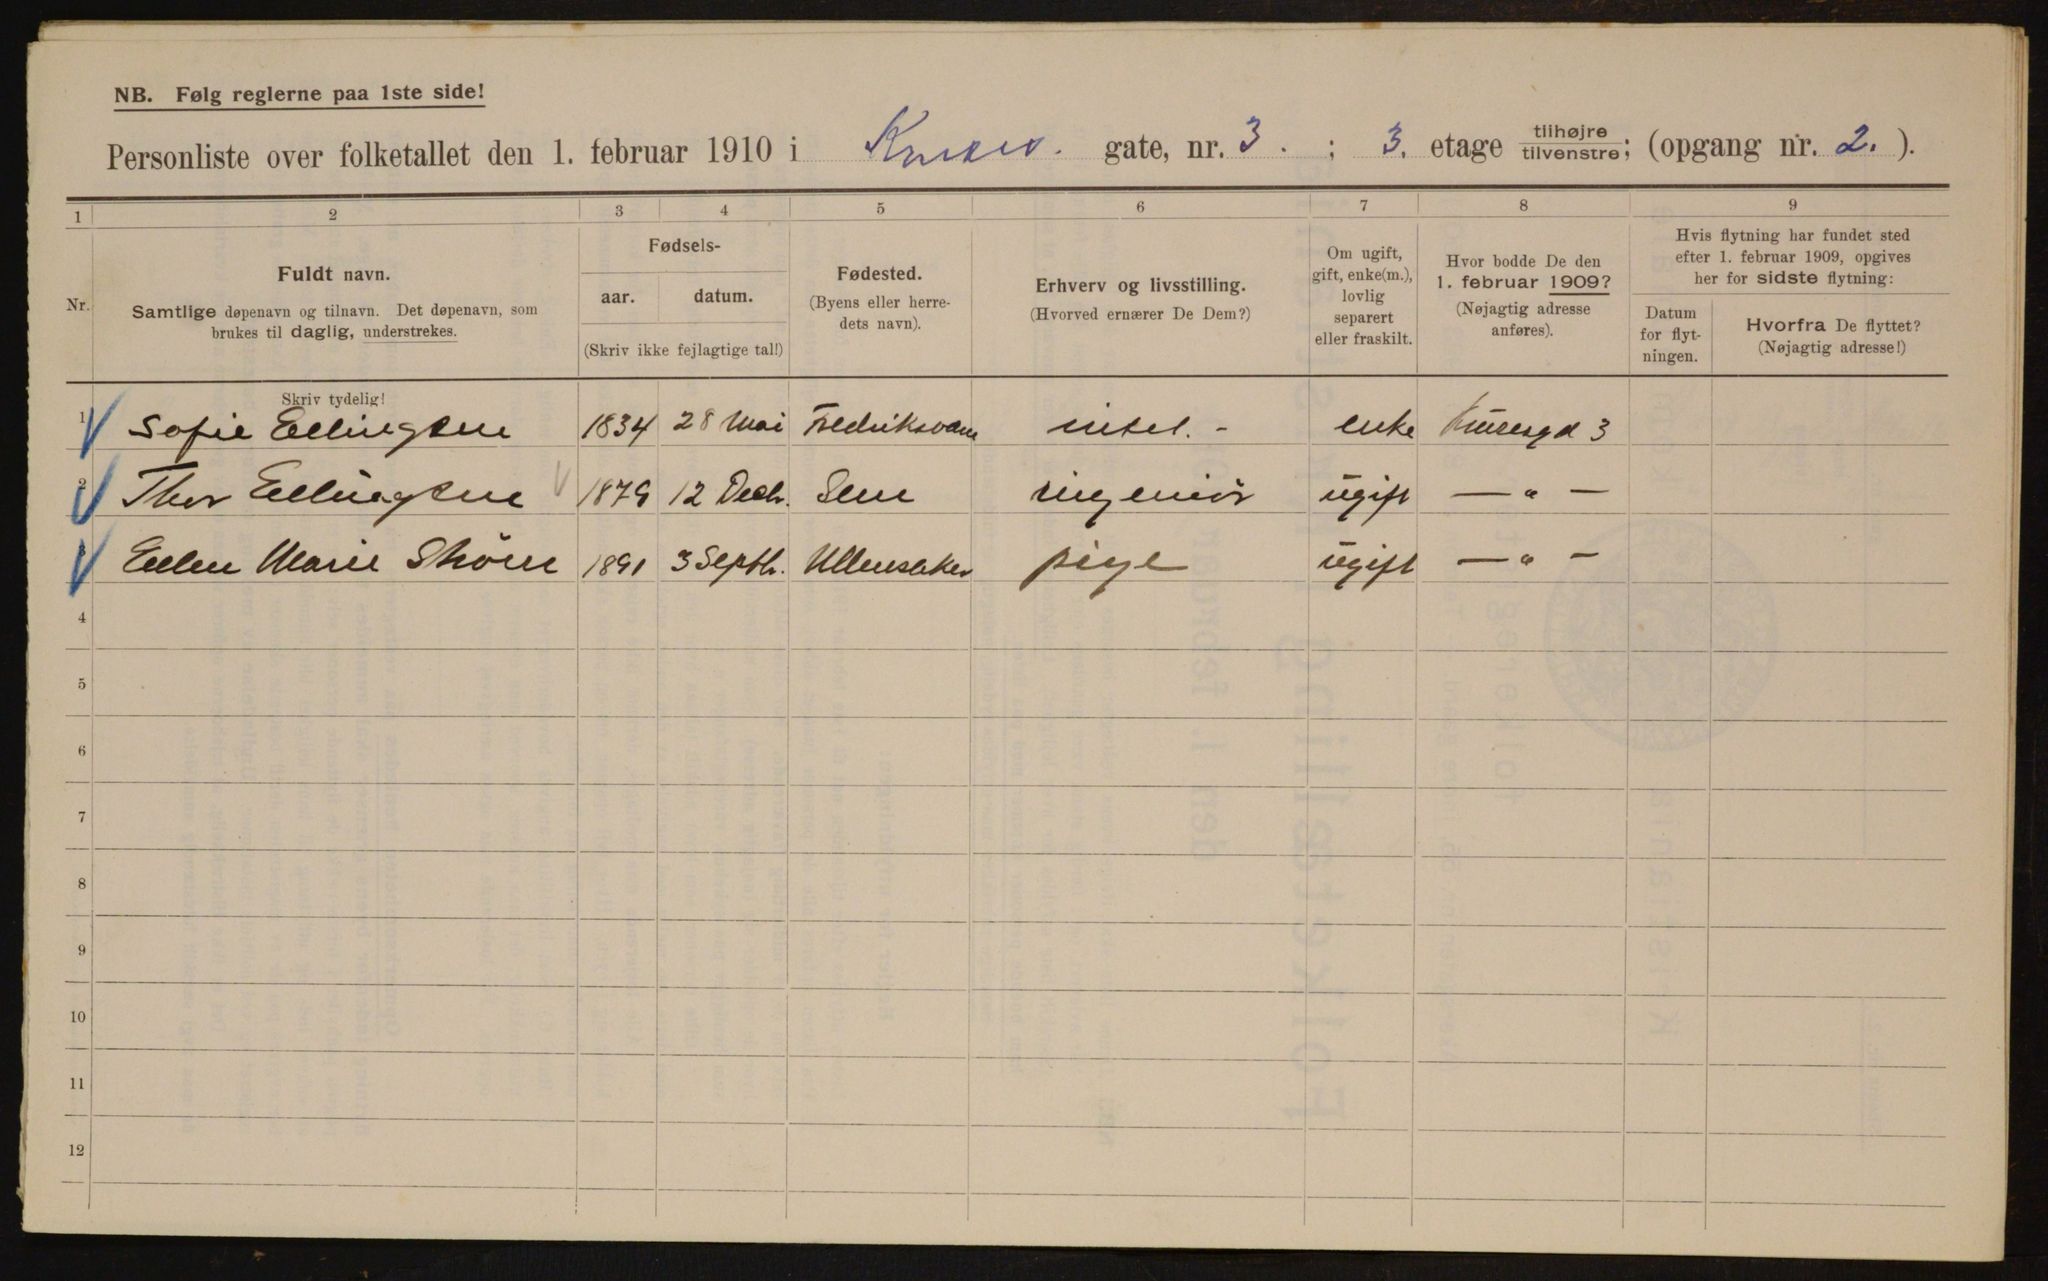 NB. Følg reglerne paa 1ste side!
Personliste over folketallet den 1. februar 1910 i gate, nr. 3. ; 3. etage tilhøjre/tilvenstre; (opgang nr. 2.).
1 2 3 4 5 6 7 8 9
Nr.
Fuldt navn.
Samtlige døpenavn og tilnavn. Det døpenavn, som
brukes til daglig, understrekes.
Skriv tydelig!
Fødsels-
aar. datum.
(Skriv ikke fejlagtige tal!)
Fødested.
(Byens eller herre-
dets navn).
Erhverv og livsstilling.
(Hvorved ernærer De Dem?)
Om ugift,
gift, enke(m.),
lovlig
separert
eller fraskilt.
Hvor bodde De den
1. februar 1909?
(Nøjagtig adresse
anføres).
Hvis flytning har fundet sted
efter 1. februar 1909, opgives
her for sidste flytning:
Datum
for flyt-
ningen.
Hvorfra De flyttet?
(Nøjagtig adresse!)
1 Sofie Ellingsen 1834 28 Mai intet. - enke 3
2 Thor Ellingsen 1879 12 Decb. Sem ingeniör ugift — " —
3 Ellen Marie 1891 3 Septb. Ullensaker pige ugift — " —
4
5
6
7
8
9
10
11
12